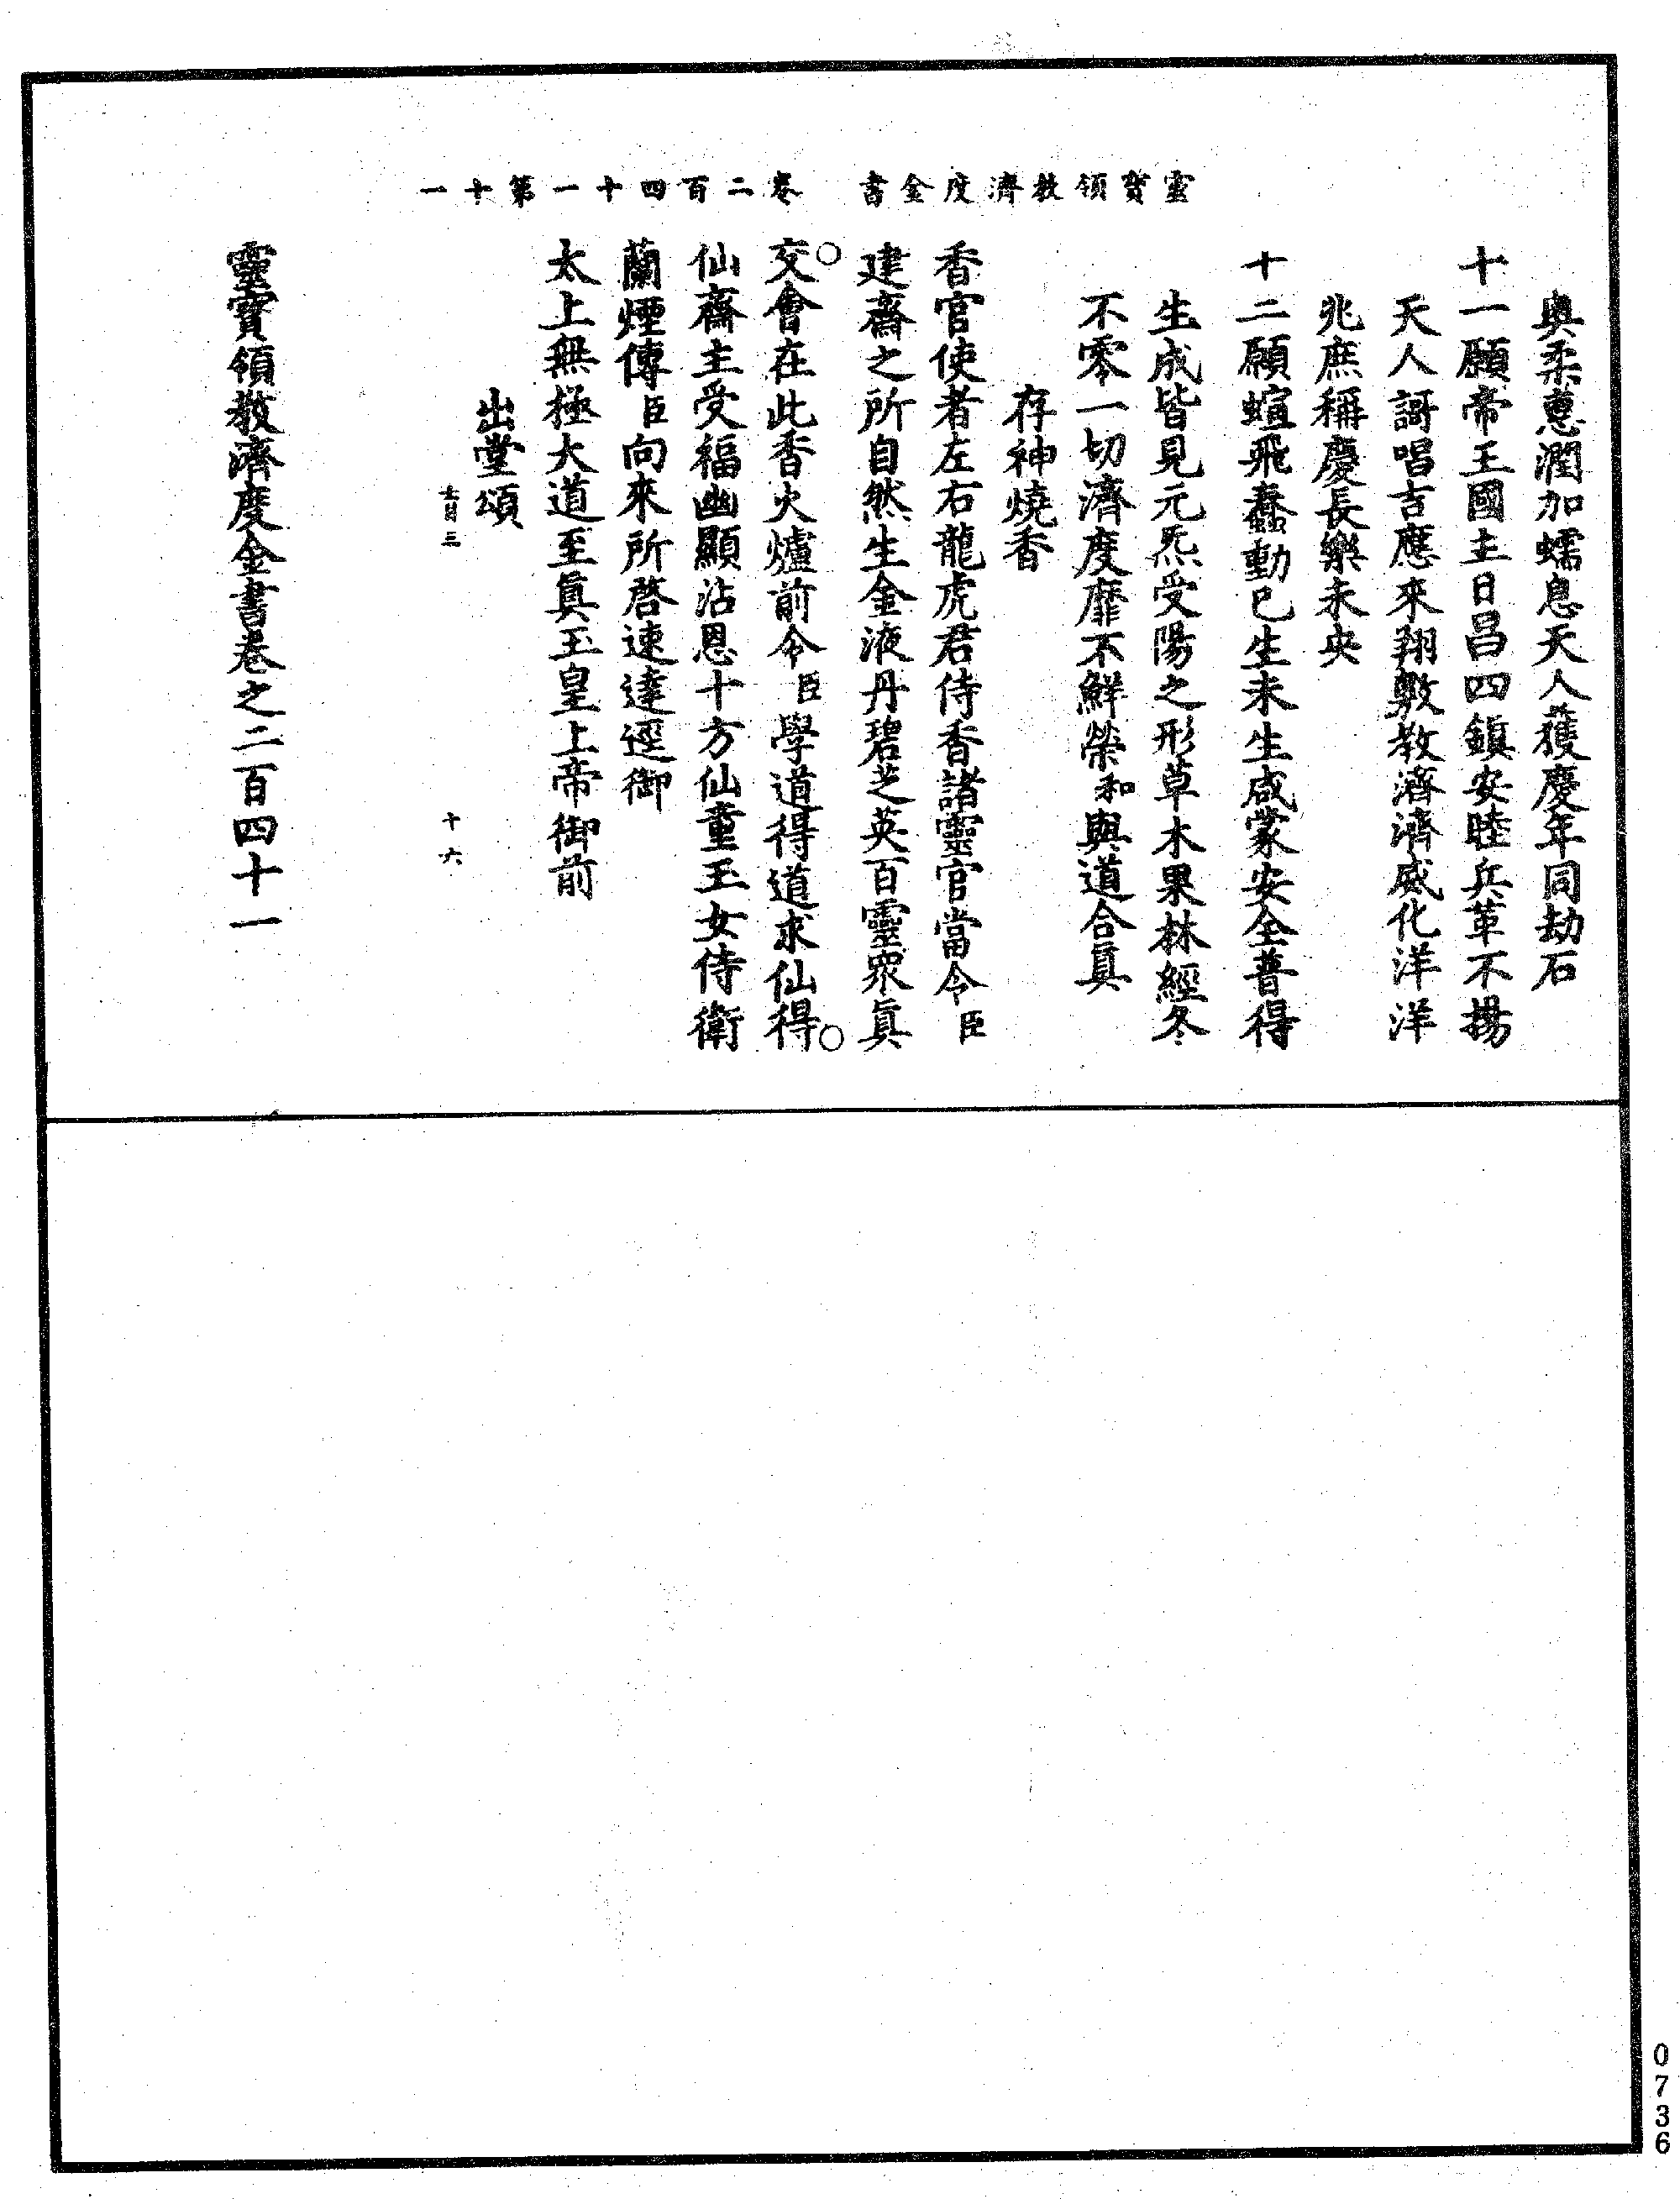 靈寶領教濟度金書　卷二百四十一第十一
輿柔惠潤加蠕息天人獲慶年同劫石
十一願帝王國主日昌四鎮安睦兵革不揚
天人謌唱吉應來翔敷教濟濟威化洋洋
兆庶稱慶長樂未央
十二願蝖飛蠢動已生未生咸蒙安全普得
生成皆見元炁受陽之形草木果林經冬
不零一切濟度靡不鮮榮和與道合真
存神燒香
香官使者左右龍虎君侍香諸靈官當令臣
建齋之所自然生金液丹碧芝英百靈眾真
○交會在此香火爐前令臣學道得道求仙得○
仙齋主受福幽顯沾恩十方仙童玉女侍衛
蘭煙傳臣向來所啓速達逕御
太上無極大道至真玉皇上帝御前
出堂頌
十六
靈寶領教濟度金書卷之二百四十一
0736